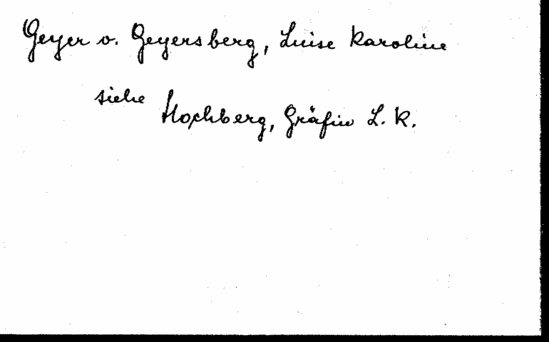 Geyer v. Geyersberg, Luise Karoline
siehe
Hochberg, Gräfin L. K.